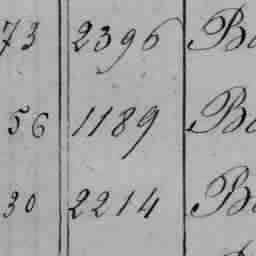 73 2396 Ba
56 1189 Ba
30 2214 Ba